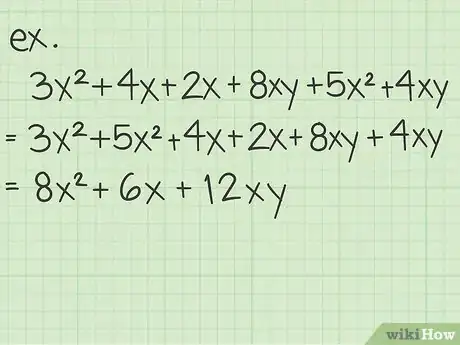 ex.
3x²+4x+2x+8xy+5x²+4xy
= 3x²+5x²+4x+2x+8xy+4xy
= 8x²+6x+12xy
wikiHow